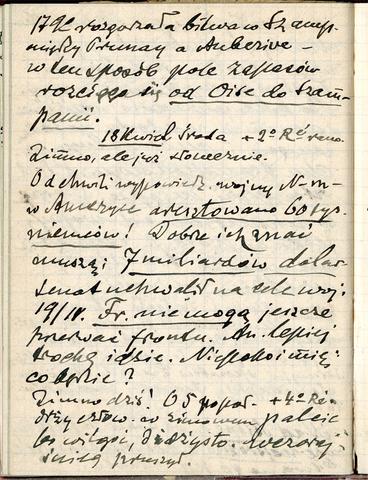 1792 rozgorzała bitwa w Szamp.
między Prunay a Auberive –
w ten sposób pole zapasów
rozciąga się od Oise do Szam-
panii.
18 Kwiec. środa +2° Ré rano
Zimno, ale jest słonecznie.
Od chwili wypowiedz. wojny N-m-
w Ameryce aresztowano 60 tys.
niemców! Dobrze ich znać
muszą; 7 miliardów dolar
senat uchwalił na cele woj.
19/IV. Fr. nie mogą jeszcze
przerwać frontu. An. lepiej
trochę idzie. Niepokoi mię;
co będzie?
Zimno dziś! O 5 popoł. +4° Ré –
w zimowem palcie
bo wilgoć, dżdżysto. Wczoraj
śnieg prószył.